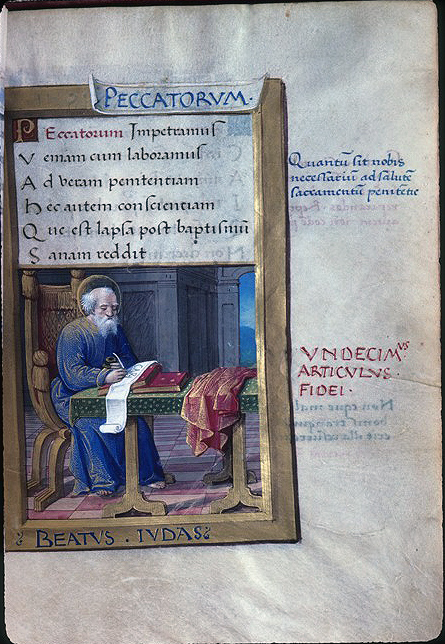 PECCATORVM.
PEccatorum Impetramus
Veniam cum laboramus
Ad veram penitentiam
Hec autem conscientiam
Que est lapsa post baptismū
Sanam reddit
Quantū sit nobis
necessariū ad salutē
sacramentū penitētie
VNDECIMVS
ARTICVLVS.
FIDEI.
BEATVS. IVDAS